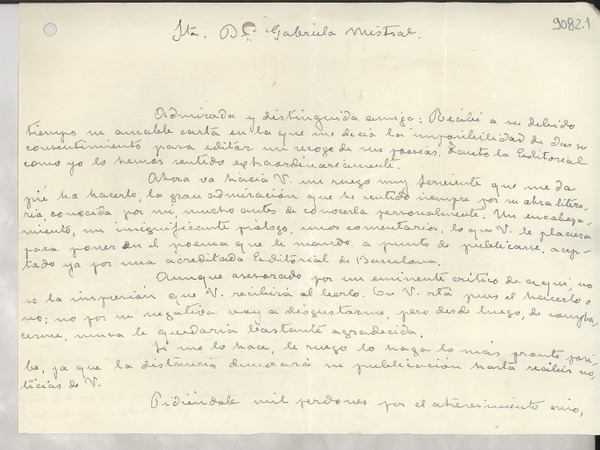 9082.1
Sta. Dª Gabriela Mistral.
Admirada y distinguida amiga: Recibí a su debido
tiempo su amable carta en la que me decía la imposibilidad de dar su
consentimiento para editar un recoge de sus poesías. Tanto la Editorial
como yo lo hemos sentido extraordinariamente.
Ahora va hacia V. un ruego muy ferviente que me da
pié ha hacerlo, la gran admiración que he sentido siempre por su obra litera-
ria, conocida por mi, mucho antes de conocerla personalmente. Un encabeza-
miento, un insignificante prólogo, unos comentarios, lo que V. le placiera
para poner en el poema que le mando a punto de publicarse, acep-
tado ya por una acreditada Editorial de Barcelona.
Aunque asesorado por un eminente crítico de aquí, no
se la impresión que V. recibirá al leerlo. En V. stá pues el hacerlo o
no; no por su negativa voy a disgustarme, pero desde luego, de compla-
cerme, nunca le quedaría bastante agradecida.
Si me lo hace, le ruego lo haga lo más pronto posi-
ble, ya que la distancia demorará su publicación hasta recibir no-
ticias de V.
Pidiéndole mil perdones por el atrevimiento mio,